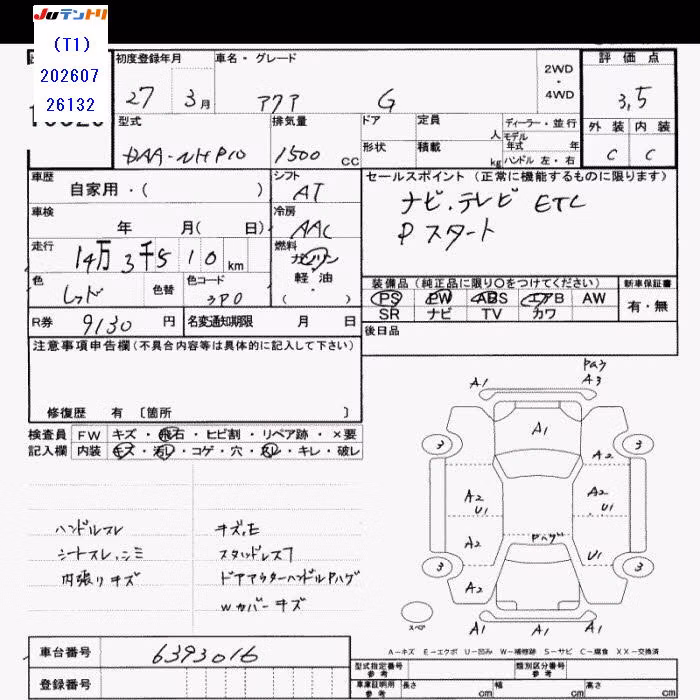 Juテントリ
(T1)
202607
26132
初度登録年月
車名・グレード
2WD
・
4WD
評価点
27 3月
アクア G
3,5
型式
排気量
ドア
定員
人
ディーラー・並行
外装 内装
モデル
年式 年
DAA-NHP10
1500 CC
形状
積載
kg
ハンドル 左・右
C C
車歴
自家用・( )
シフト
AT
セールスポイント (正常に機能するものに限ります)
ナビ・テレビ ETC
Pスタート
車検
年 月( 日)
冷房
AAC
走行
14万3千510km
燃料
ガソリン
軽・油
( )
色
レッド
色替
色コード
3P0
装備品(純正品に限り〇をつけてください)
新車保証書
PS PW ABS エアB AW
有・無
SR ナビ TV カワ
R券
9130円
名変通知期限 月 日
後日品
注意事項申告欄(不具合内容等は具体的に記入して下さい)
修復歴 有〔箇所 〕
検査員
記入欄
FW キズ・飛石・ヒビ割・リペア跡・×要
内装 キズ・汚レ・コゲ・穴・スレ・キレ・破レ
ハンドルスレ
シートスレ、シミ
内張りキズ
キズ、E
スタッドレス7
ドアアウターハンドルPハゲ
Wカバーキズ
A1
Pハゲ
A3
A1
3
3
A1
A2
U1
A2
U1
A2
Pハゲ
U1
3
3
A2
スペア
A1
A1
A1
A-キズ E-エクボ U-凹み W-補修跡 S-サビ C-腐食 XX-交換済
車台番号
6393016
登録番号
型式指定番号
参考
類別区分番号
参考
車庫証明用
参考
長さ cm
幅 cm
高さ cm